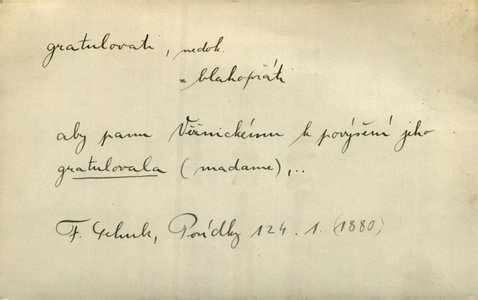 gratulovati, nedok.
= blahopřáti
aby panu Věžnickému k povýšení jeho
gratulovala (madame),..
F. Schulz, Povídky 124. 1. (1880)